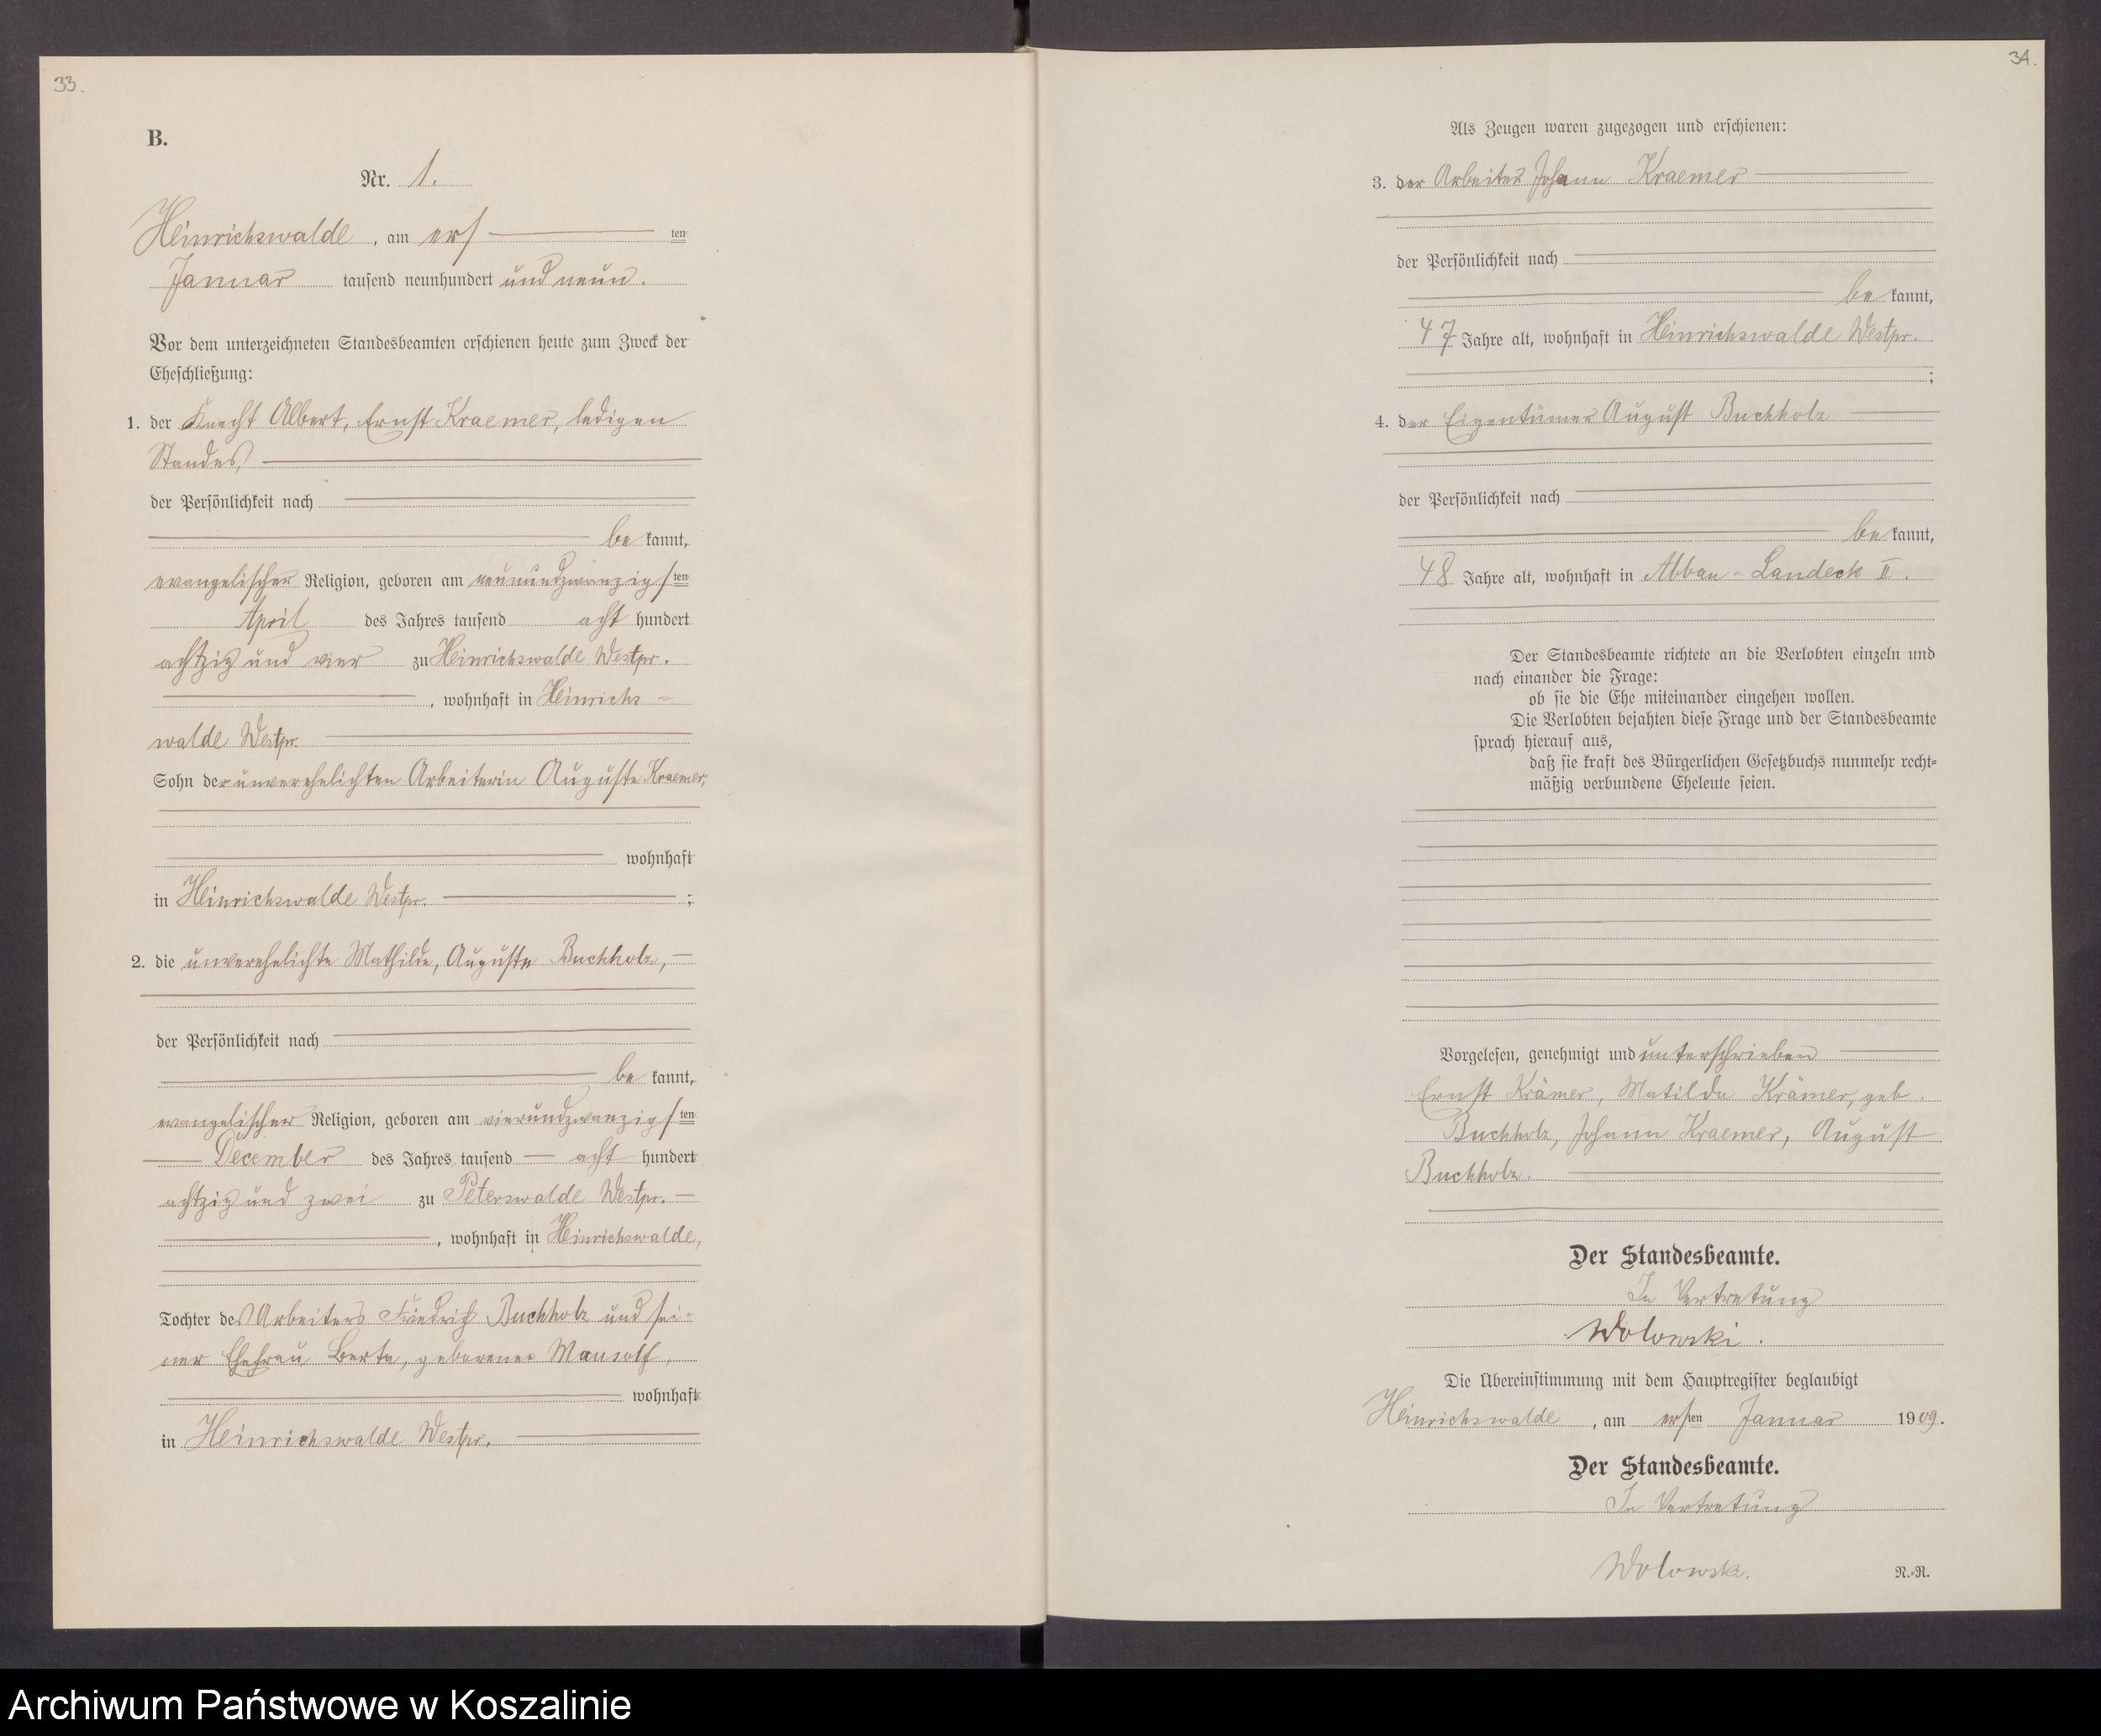 33.
B.
Nr. 1.
Heinrichswalde, am erſ ten
Januar tauſend neunhundert und neun.
Vor dem unterzeichneten Standesbeamten erſchienen heute zum Zweck der
Eheſchließung:
1. der Knecht Albert, Ernst Kraemer, ledigen
Standes,
der Perſönlichkeit nach
be kannt,
evangelischer Religion, geboren am neunundzwanzigs ten
April des Jahres tauſend acht hundert
achtzig und vier zu Heinrichswalde Westpr.
, wohnhaft in Heinrichs=
walde Westpr.
Sohn der unverehelichten Arbeiterin Auguste Kraemer,
wohnhaft
in Heinrichswalde Westpr. ;
2. die unverehelichte Mathilde, Auguste Buchholz,
der Perſönlichkeit nach
be kannt,
evangelischer Religion, geboren am vierundzwanzigs ten
December des Jahres tauſend acht hundert
achtzig und zwei zu Peterswalde Westpr.
, wohnhaft in Heinrichswalde,
Tochter des Arbeiters Friedrich Buchholz und sei=
ner Ehefrau Berta, geborener Mansolf,
wohnhaft
in Heinrichswalde Westpr.
34.
Als Zeugen waren zugezogen und erſchienen:
3. der Arbeiter Johann Kraemer
der Perſönlichkeit nach
be kannt,
47 Jahre alt, wohnhaft in Heinrichswalde Westpr.
;
4. der Eigentümer August Buchholz
der Perſönlichkeit nach
be kannt,
48 Jahre alt, wohnhaft in Abbau=Landeck II.
Der Standesbeamte richtete an die Verlobten einzeln und
nach einander die Frage:
ob ſie die Ehe miteinander eingehen wollen.
Die Verlobten bejahten dieſe Frage und der Standesbeamte
ſprach hierauf aus,
daß ſie kraft des Bürgerlichen Geſetzbuchs nunmehr recht=
mäßig verbundene Eheleute ſeien.
Vorgeleſen, genehmigt und unterschrieben
Ernst Krämer, Matilde Krämer, geb.
Buchholz, Johann Kraemer, August
Buchholz.
Der Standesbeamte.
In Vertretung
Wolowski.
Die Übereinſtimmung mit dem Hauptregiſter beglaubigt
Heinrichswalde, am ersten Januar 1909.
Der Standesbeamte.
In Vertretung
Wolowski.
N.=R.
Archiwum Państwowe w Koszalinie